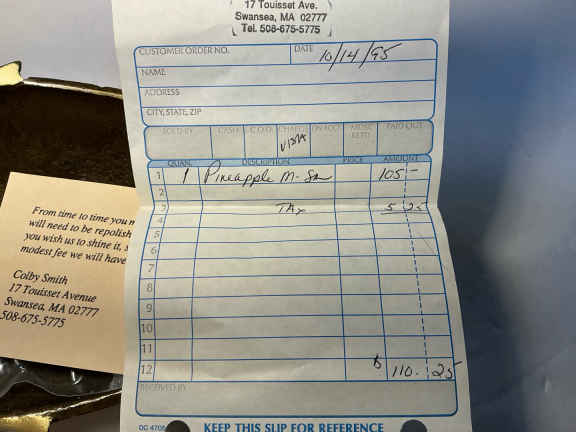 17 Touisset Ave.
Swansea, MA 02777
Tel. 508-675-5775
CUSTOMER ORDER NO. DATE 10/14/95
NAME
ADDRESS
CITY, STATE, ZIP
SOLD BY CASH C.O.D. CHARGE ON ACCT. MDSE. RETD. PAID OUT
VISA
QUAN. DESCRIPTION PRICE AMOUNT
1 1 Pineapple M- Sm 105 -
2
3 TAX 5 25
4
5
6
7
8
9
10
11
12 $ 110. 25
RECEIVED BY
DC 4705 KEEP THIS SLIP FOR REFERENCE
From time to time you
will need to be repolish
you wish us to shine it,
modest fee we will have
Colby Smith
17 Touisset Avenue
Swansea, MA 02777
508-675-5775